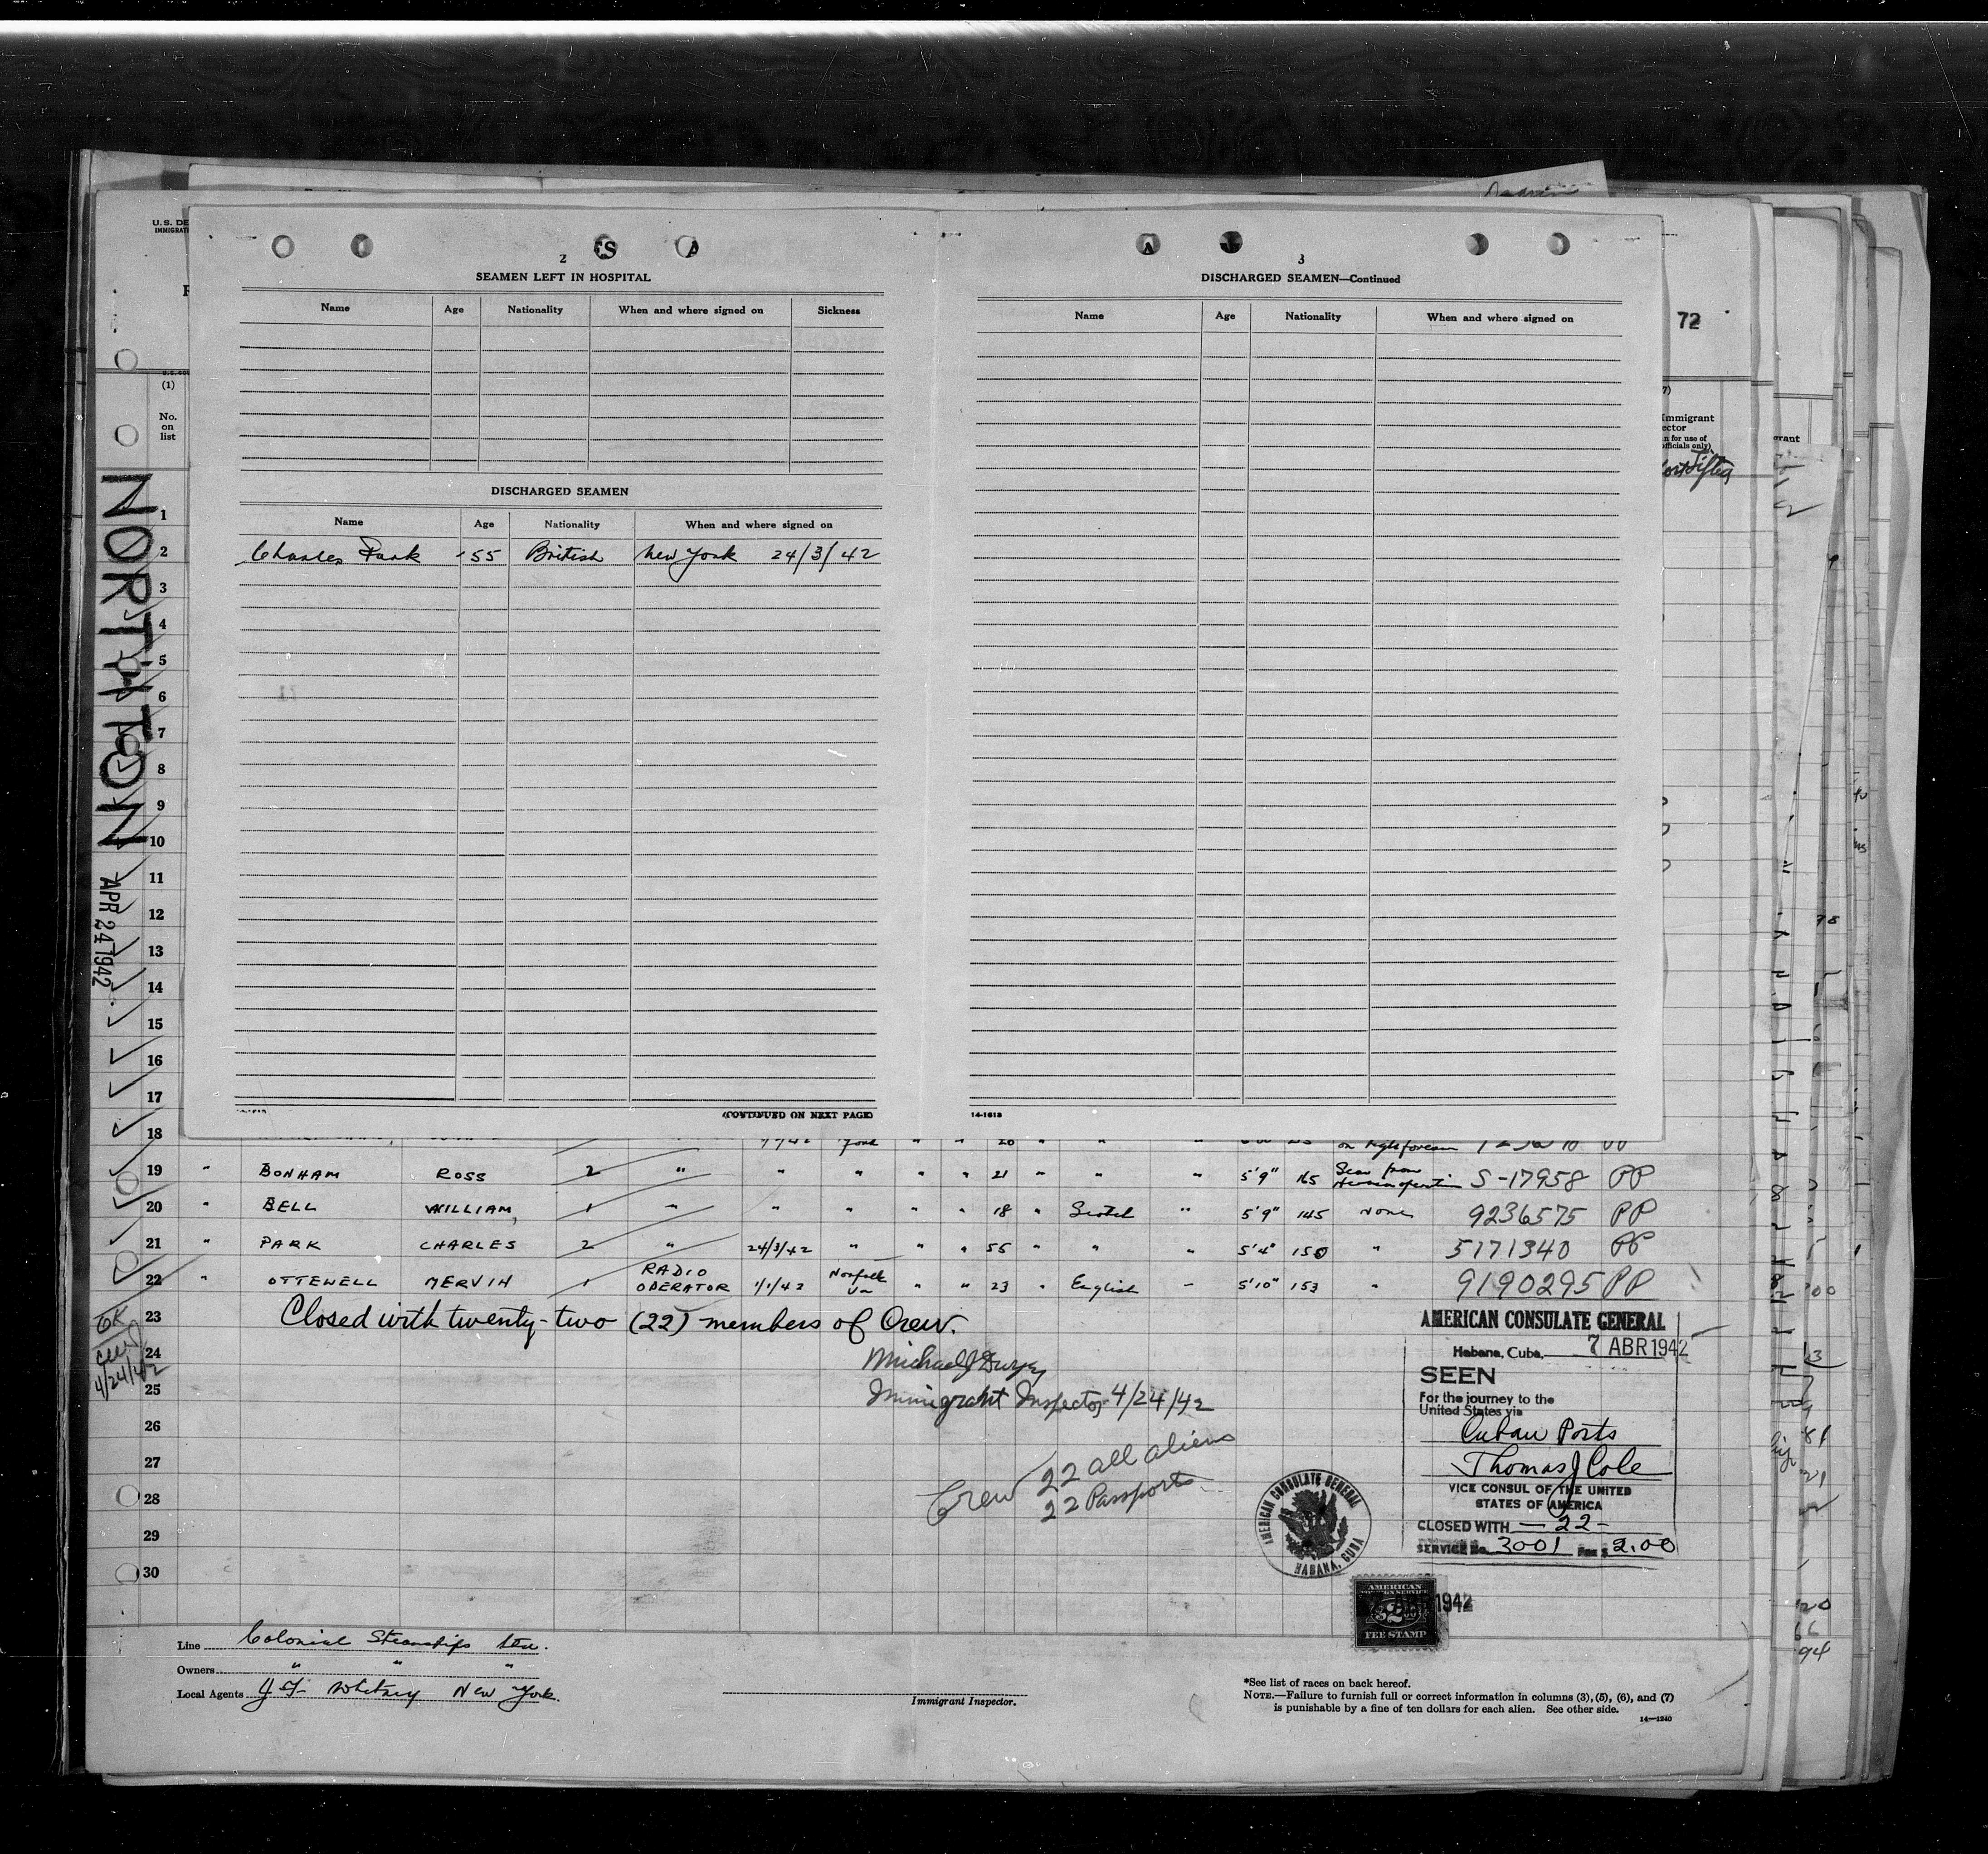 U.S. DE
IMMIGRAT
2
SEAMEN LEFT IN HOSPITAL
Name Age Nationality When and where signed on Sickness
DISCHARGED SEAMEN
Name Age Nationality When and where signed on
Charles Park 55 British New York 24/3/42
(CONTINUED ON NEXT PAGE)
3
DISCHARGED SEAMEN—Continued
Name Age Nationality When and where signed on
14-1613
72
(1)
No.
on
list
Immigrant
ector
n for use of
officials only)
NORTHTON
APR 24 1942
1
2
3
4
5
6
7
8
9
10
11
12
13
14
15
16
17
18
19 " BONHAM ROSS 2 " " " " " 21 " " " 5'9" 165 Scar from S-17958 PP
20 " BELL WILLIAM 1 " " " " " 18 " Scotch " 5'9" 145 None 9236575 PP
21 " PARK CHARLES 2 " 24/3/42 " " " 55 " " " 5'4" 150 " 5171340 PP
22 " OTTEWELL MERVIN 1 RADIO OPERATOR 1/1/42 Norfolk Va " " 23 " English - 5'10" 153 " 9190295 PP
23 Closed with twenty-two (22) members of Crew.
24 Michael J Dwyer
25 Immigrant Inspector 4/24/42
26
27
28
29
30
OK
4/24/42
Crew 22 all aliens
22 Passports
AMERICAN CONSULATE GENERAL
Habana, Cuba, 7 ABR 1942
SEEN
For the journey to the
United States via
Cuban Ports
Thomas J Cole
VICE CONSUL OF THE UNITED
STATES OF AMERICA
CLOSED WITH — 22 —
SERVICE No. 3001 Fee $ 2.00
AMERICAN CONSULATE GENERAL
HABANA, CUBA
AMERICAN
FOREIGN SERVICE
$2.00
FEE STAMP
1942
Line Colonial Steamships Ltd.
Owners " " "
Local Agents J F Whitney New York.
Immigrant Inspector.
*See list of races on back hereof.
NOTE.—Failure to furnish full or correct information in columns (3), (5), (6), and (7)
is punishable by a fine of ten dollars for each alien. See other side.
14—1240